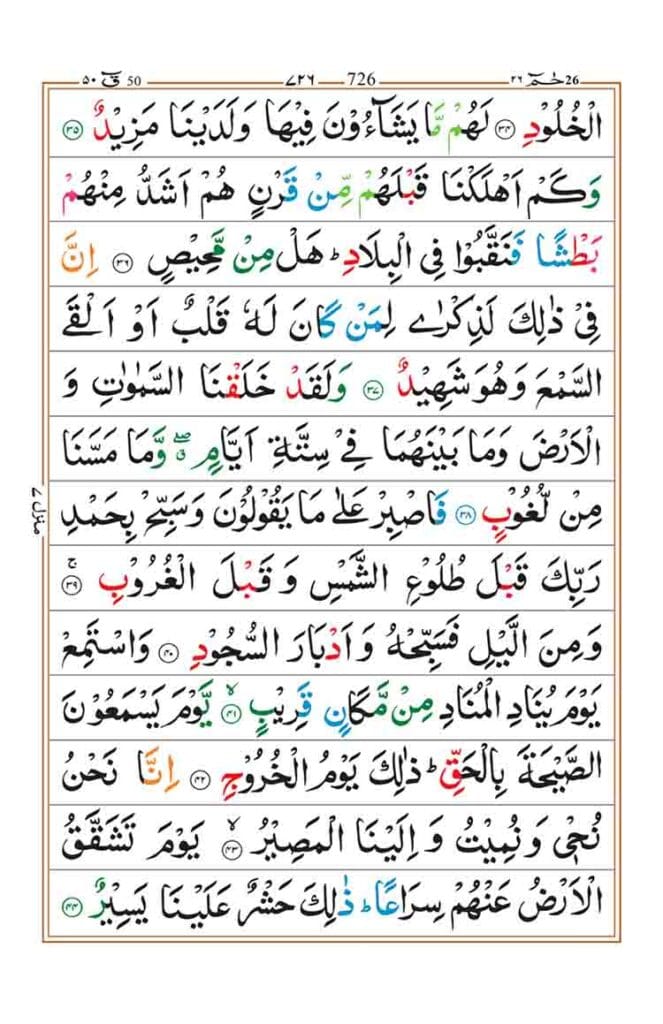 ٥٠ قٓ 50 ٧٢٦ 726 ٢٦ حٰمٓ 26
الْخُلُوْدِ ۝٣٤ لَهُمْ مَّا يَشَآءُوْنَ فِيْهَا وَلَدَيْنَا مَزِيْدٌ ۝٣٥
وَكَمْ اَهْلَكْنَا قَبْلَهُمْ مِّنْ قَرْنٍ هُمْ اَشَدُّ مِنْهُمْ
بَطْشًا فَنَقَّبُوْا فِى الْبِلَادِ ؕ هَلْ مِنْ مَّحِيْصٍ ۝٣٦ اِنَّ
فِيْ ذٰلِكَ لَذِكْرٰى لِمَنْ كَانَ لَهٗ قَلْبٌ اَوْ اَلْقَى
السَّمْعَ وَهُوَ شَهِيْدٌ ۝٣٧ وَلَقَدْ خَلَقْنَا السَّمٰوٰتِ وَ
الْاَرْضَ وَمَا بَيْنَهُمَا فِيْ سِتَّةِ اَيَّامٍ ۖ وَّمَا مَسَّنَا
مِنْ لُّغُوْبٍ ۝٣٨ فَاصْبِرْ عَلٰى مَا يَقُوْلُوْنَ وَسَبِّحْ بِحَمْدِ
رَبِّكَ قَبْلَ طُلُوْعِ الشَّمْسِ وَقَبْلَ الْغُرُوْبِ ۚ ۝٣٩
وَمِنَ الَّيْلِ فَسَبِّحْهُ وَاَدْبَارَ السُّجُوْدِ ۝٤٠ وَاسْتَمِعْ
يَوْمَ يُنَادِ الْمُنَادِ مِنْ مَّكَانٍ قَرِيْبٍ ۙ ۝٤١ يَّوْمَ يَسْمَعُوْنَ
الصَّيْحَةَ بِالْحَقِّ ؕ ذٰلِكَ يَوْمُ الْخُرُوْجِ ۝٤٢ اِنَّا نَحْنُ
نُحْيٖ وَنُمِيْتُ وَاِلَيْنَا الْمَصِيْرُ ۙ ۝٤٣ يَوْمَ تَشَقَّقُ
الْاَرْضُ عَنْهُمْ سِرَاعًا ؕ ذٰلِكَ حَشْرٌ عَلَيْنَا يَسِيْرٌ ۝٤٤
منزل ٧